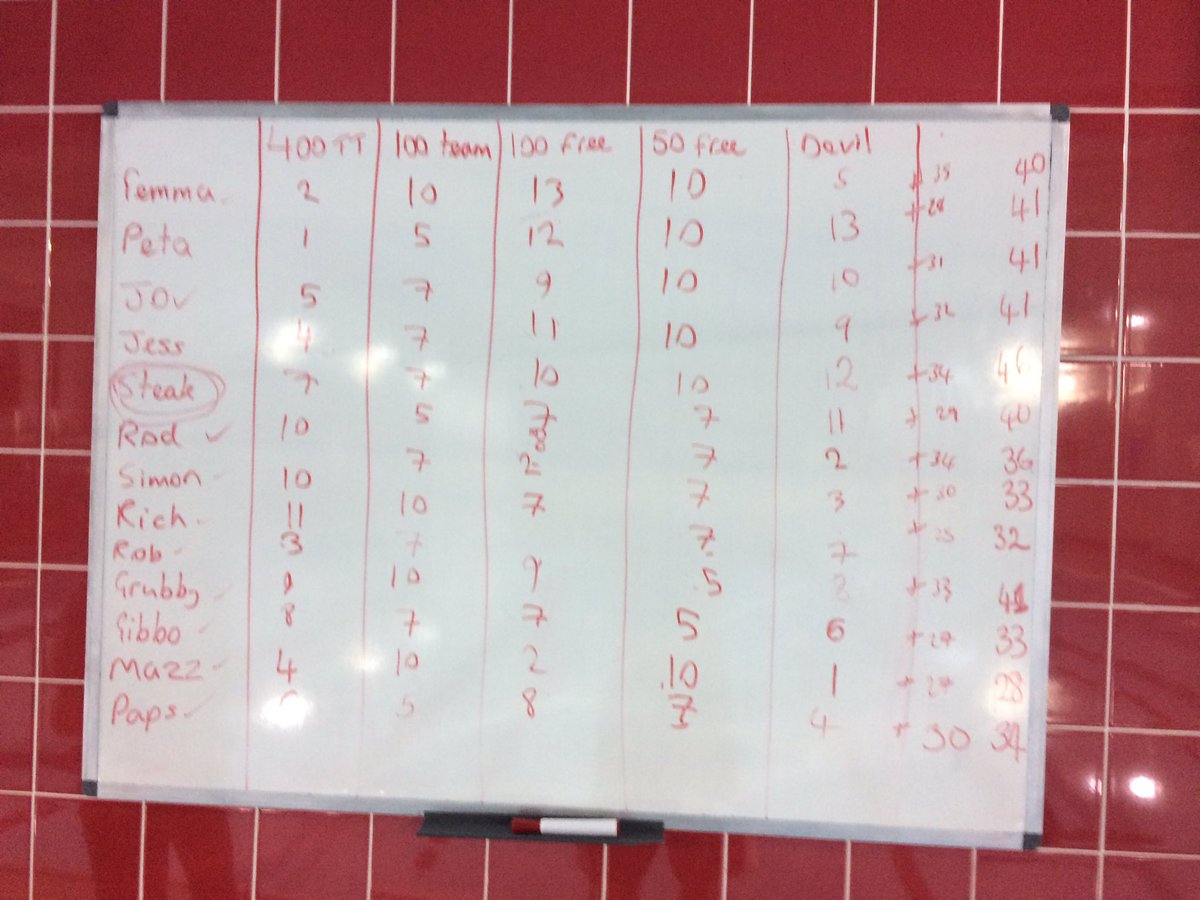 400 TT 100 team 100 free 50 free Devil
Femma 2 10 13 10 5 +35 40
Peta 1 5 12 10 13 +28 41
JOv 5 7 9 10 10 +31 41
Jess 4 7 11 10 9 +32 41
Steak 7 7 10 10 12 +34 46
Rod ✓ 10 5 7 7 11 +29 40
Simon 10 7 7 2 +34 36
Rich 11 10 7 7 3 +30 33
Rob 3 7 7 7 +25 32
Grubby 9 10 9 5 8 +33 41
Gibbo 8 7 7 5 6 +27 33
Mazz 4 10 2 10 1 +27 28
Paps 5 8 7 4 +30 34